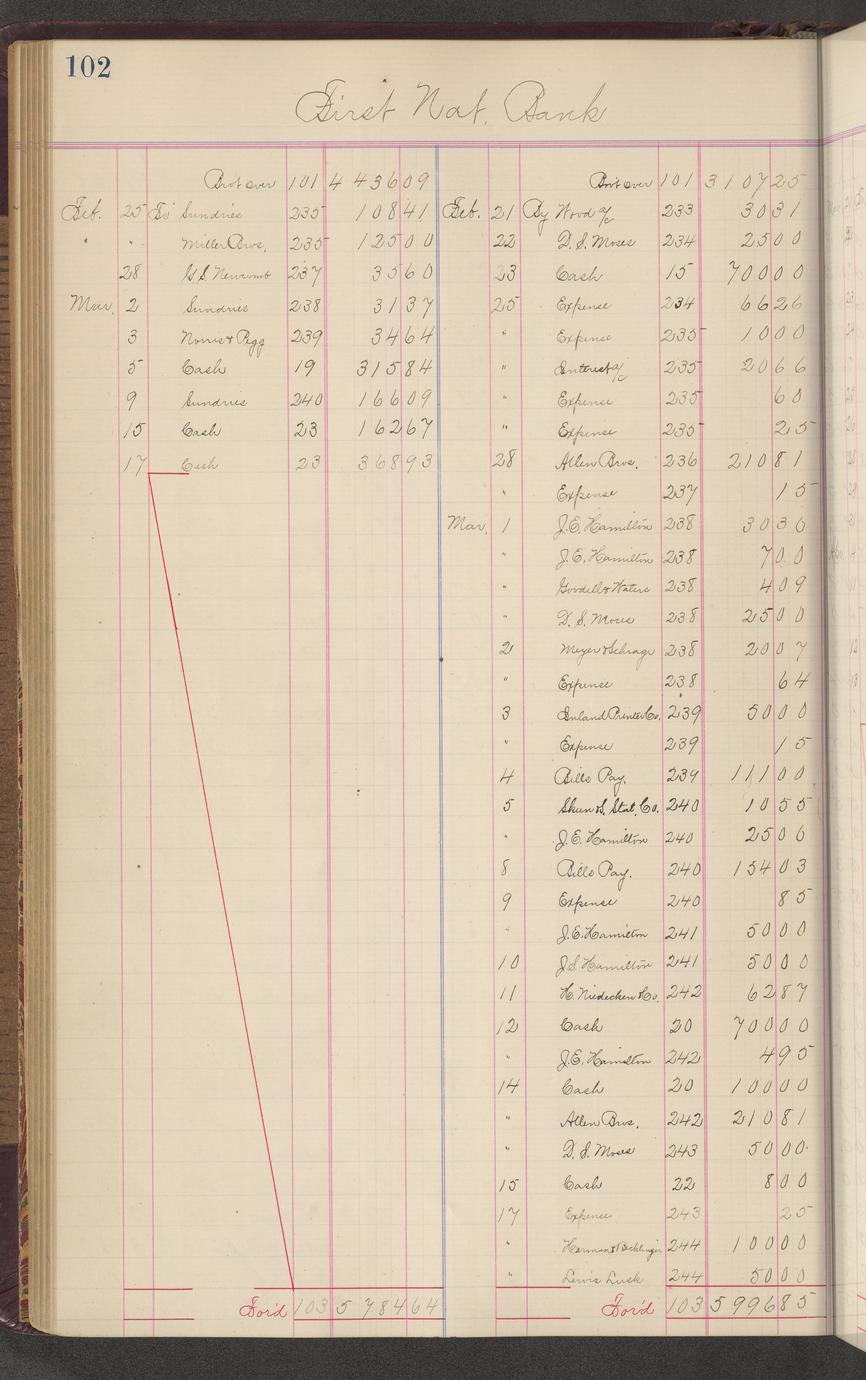 102
First Nat. Bank
Brot over 101 4 436 09
Feb. 25 To Sundries 235 108 41
" " Miller Bros. 235 125 00
28 G.S. Newcomb 237 35 60
Mar. 2 Sundries 238 31 37
3 Norris & Pegg 239 34 64
5 Cash 19 315 84
9 Sundries 240 166 09
15 Cash 23 162 67
17 Cash 23 368 93
For'd 103 5 784 64
Brot over 101 3 107 25
Feb. 21 By Wood a/c 233 30 31
22 D. S. Moses 234 25 00
23 Cash 15 700 00
25 Expense 234 66 26
" Expense 235 10 00
" Interest a/c 235 20 66
" Expense 235 60
" Expense 235 25
28 Allen Bros. 236 210 81
" Expense 237 15
Mar. 1 J.E. Hamilton 238 30 30
" J.E. Hamilton 238 7 00
" Goodell & Waters 238 4 09
" D. S. Moses 238 25 00
2 Meyer & Schrage 238 20 07
" Expense 238 64
3 Inland Printer Co. 239 50 00
" Expense 239 15
4 Bills Pay. 239 111 00
5 Stat. Co. 240 10 55
" J.E. Hamilton 240 25 00
8 Bills Pay. 240 154 03
9 Expense 240 85
" J.E. Hamilton 241 50 00
10 J.S. Hamilton 241 50 00
11 H. Niedecken & Co. 242 62 87
12 Cash 20 700 00
" J.E. Hamilton 242 4 95
14 Cash 20 100 00
" Allen Bros. 242 210 81
" D. S. Moses 243 50 00
15 Cash 22 8 00
17 Expense 243 25
" 244 100 00
" Lewis Lusk 244 50 00
For'd 103 5 996 85